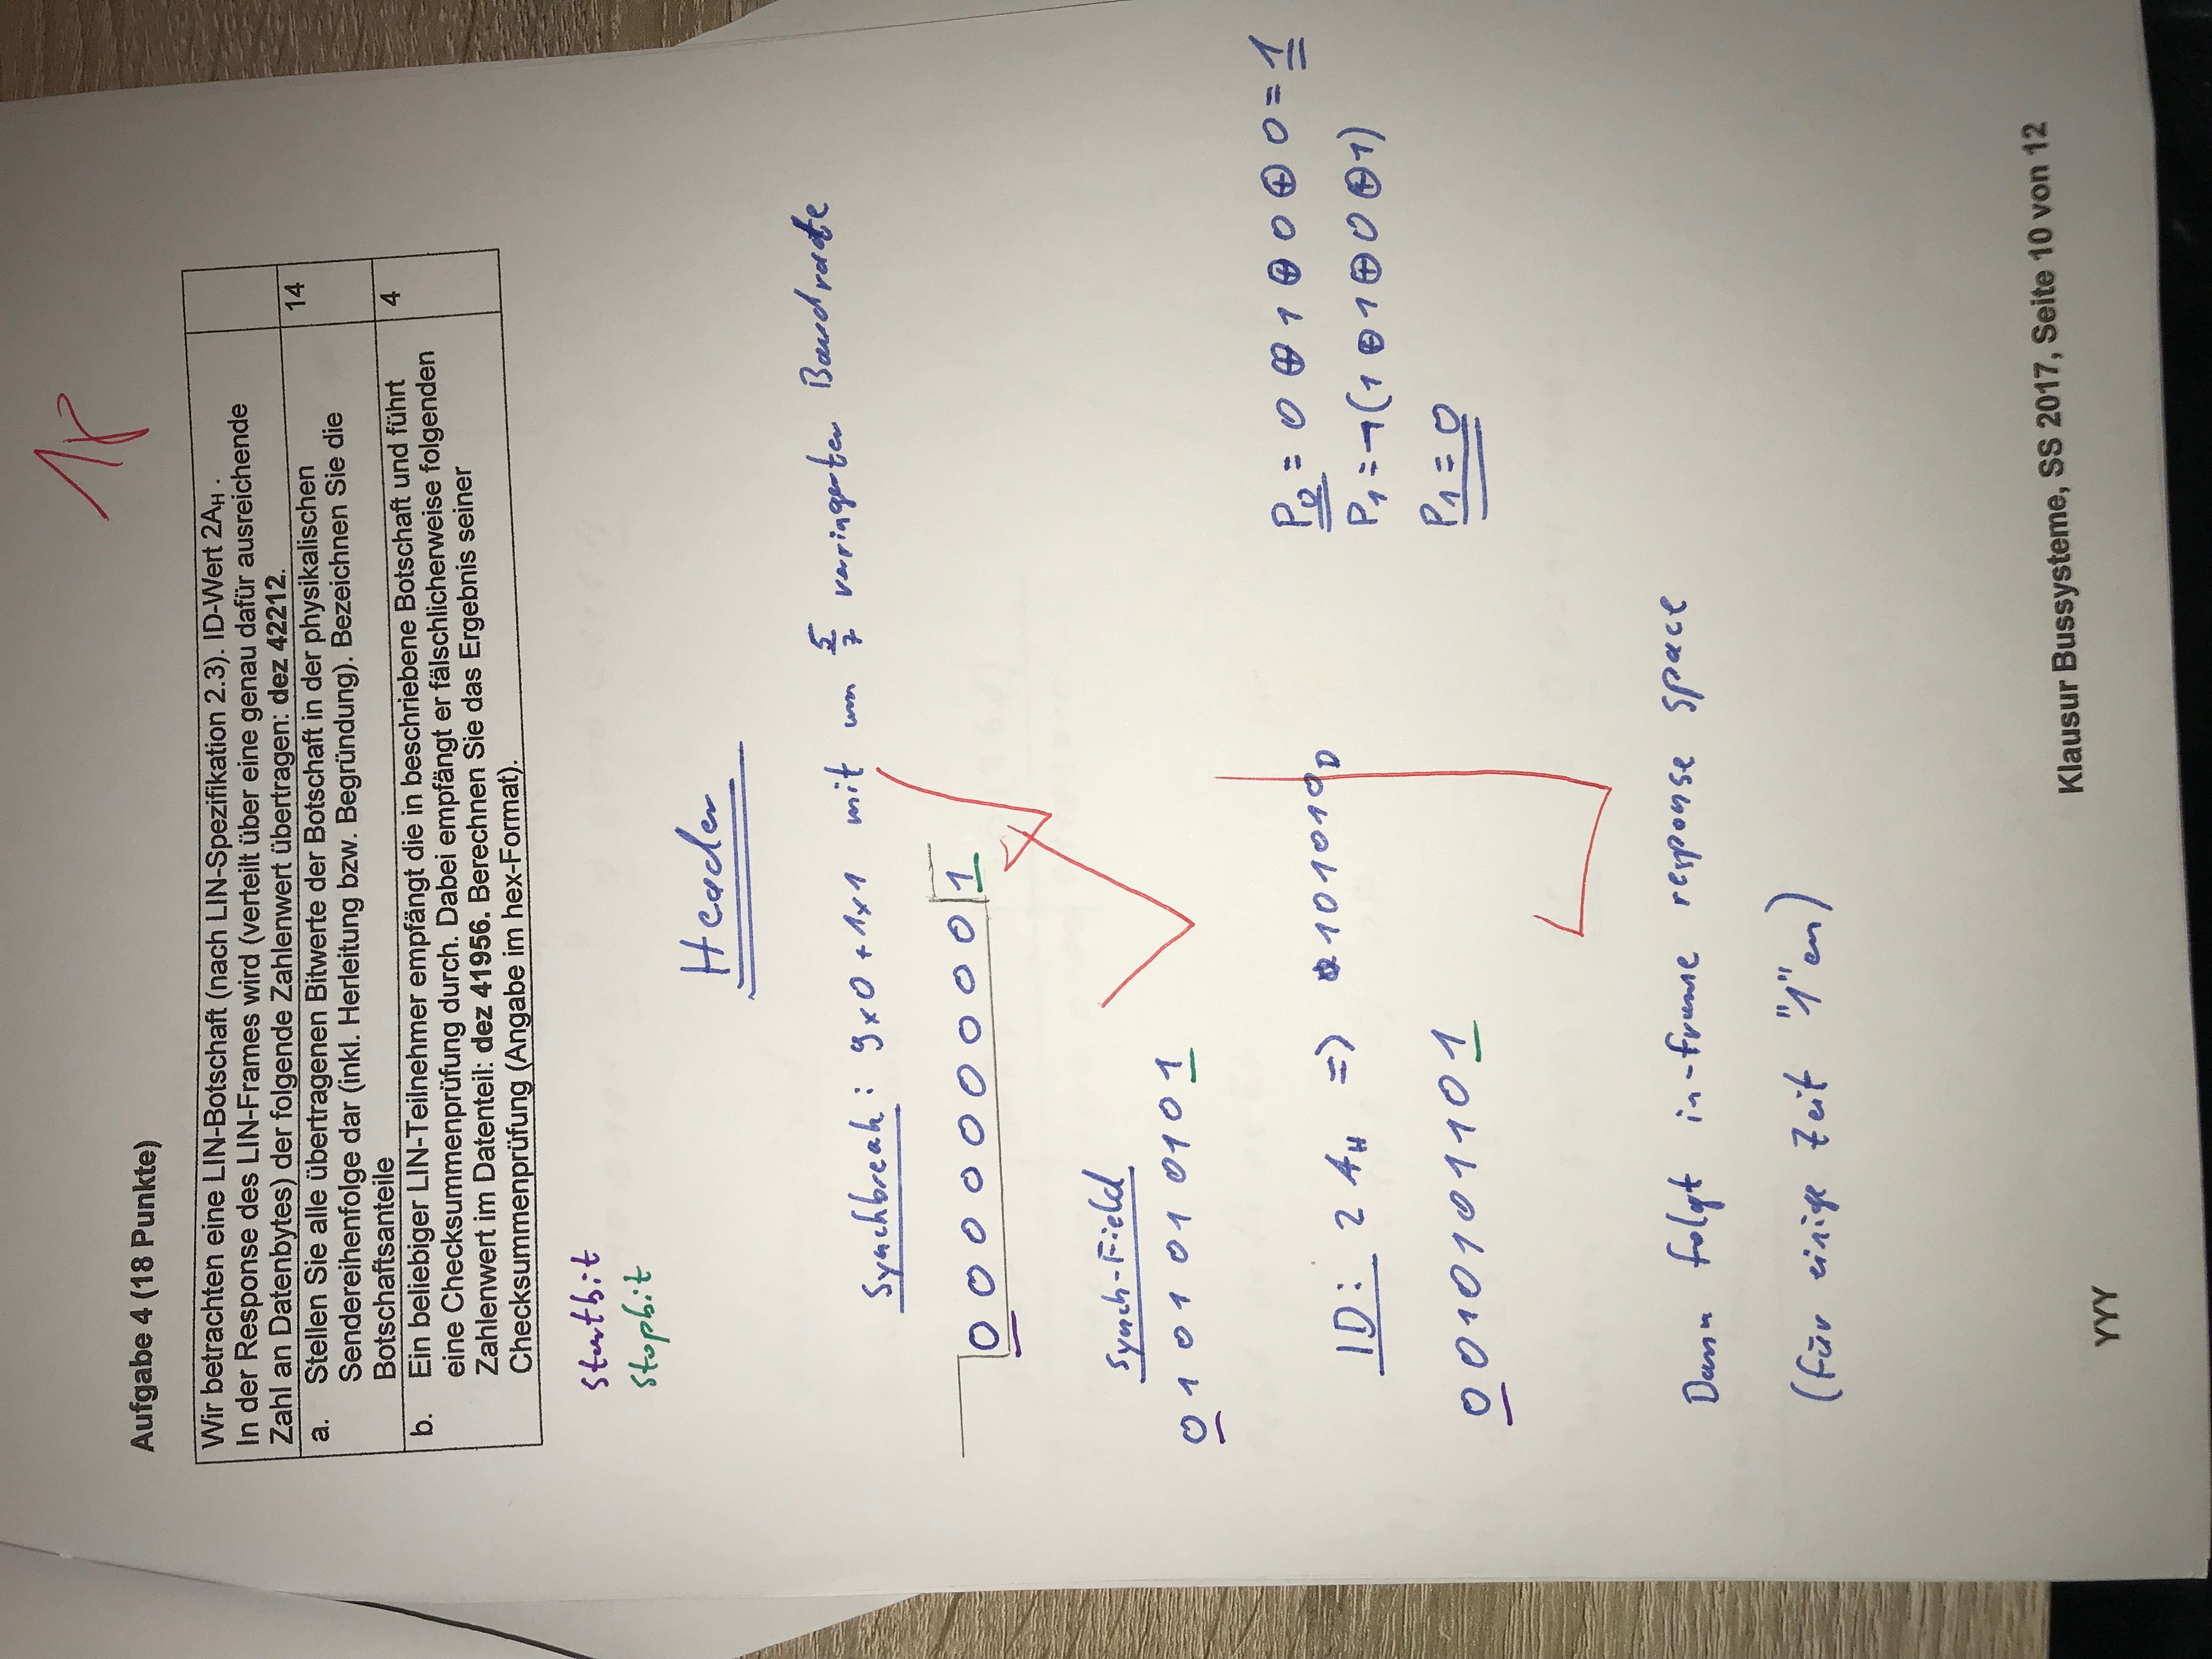 18
Aufgabe 4 (18 Punkte)
Wir betrachten eine LIN-Botschaft (nach LIN-Spezifikation 2.3). ID-Wert 2A_H .
In der Response des LIN-Frames wird (verteilt über eine genau dafür ausreichende
Zahl an Datenbytes) der folgende Zahlenwert übertragen: dez 42212.
a. Stellen Sie alle übertragenen Bitwerte der Botschaft in der physikalischen 14
Sendereihenfolge dar (inkl. Herleitung bzw. Begründung). Bezeichnen Sie die
Botschaftsanteile
b. Ein beliebiger LIN-Teilnehmer empfängt die in beschriebene Botschaft und führt 4
eine Checksummenprüfung durch. Dabei empfängt er fälschlicherweise folgenden
Zahlenwert im Datenteil: dez 41956. Berechnen Sie das Ergebnis seiner
Checksummenprüfung (Angabe im hex-Format).
Startbit
Stopbit
Header
Synchbreak: 9x0 + 1x1 mit um 5/7 verringerter Baudrate
0 0 0 0 0 0 0 0 0 1
Synch-Field
0 1 0 1 0 1 0 1 0 1
ID: 2A_H => 101010_D
0 0 1 0 1 0 1 1 0 1
P0 = 0 ⊕ 1 ⊕ 0 ⊕ 0 = 1
P1 = ¬(1 ⊕ 1 ⊕ 0 ⊕ 1)
P1 = 0
Dann folgt in-frame response space
(für einige Zeit "1"en)
Klausur Bussysteme, SS 2017, Seite 10 von 12
YYY